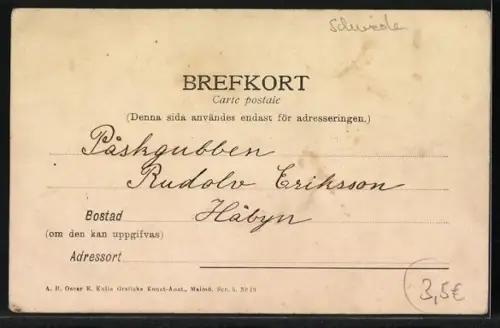 Schwede
BREFKORT
Carte postale
(Denna sida användes endast för adresseringen.)
Påskgubben
Rudolv Eriksson
Bostad Håbyn
(om den kan uppgifvas)
Adressort
A. B. Oscar E. Kulls Grafiska Konst-Anst., Malmö. Ser. 5. No 18
3,5€